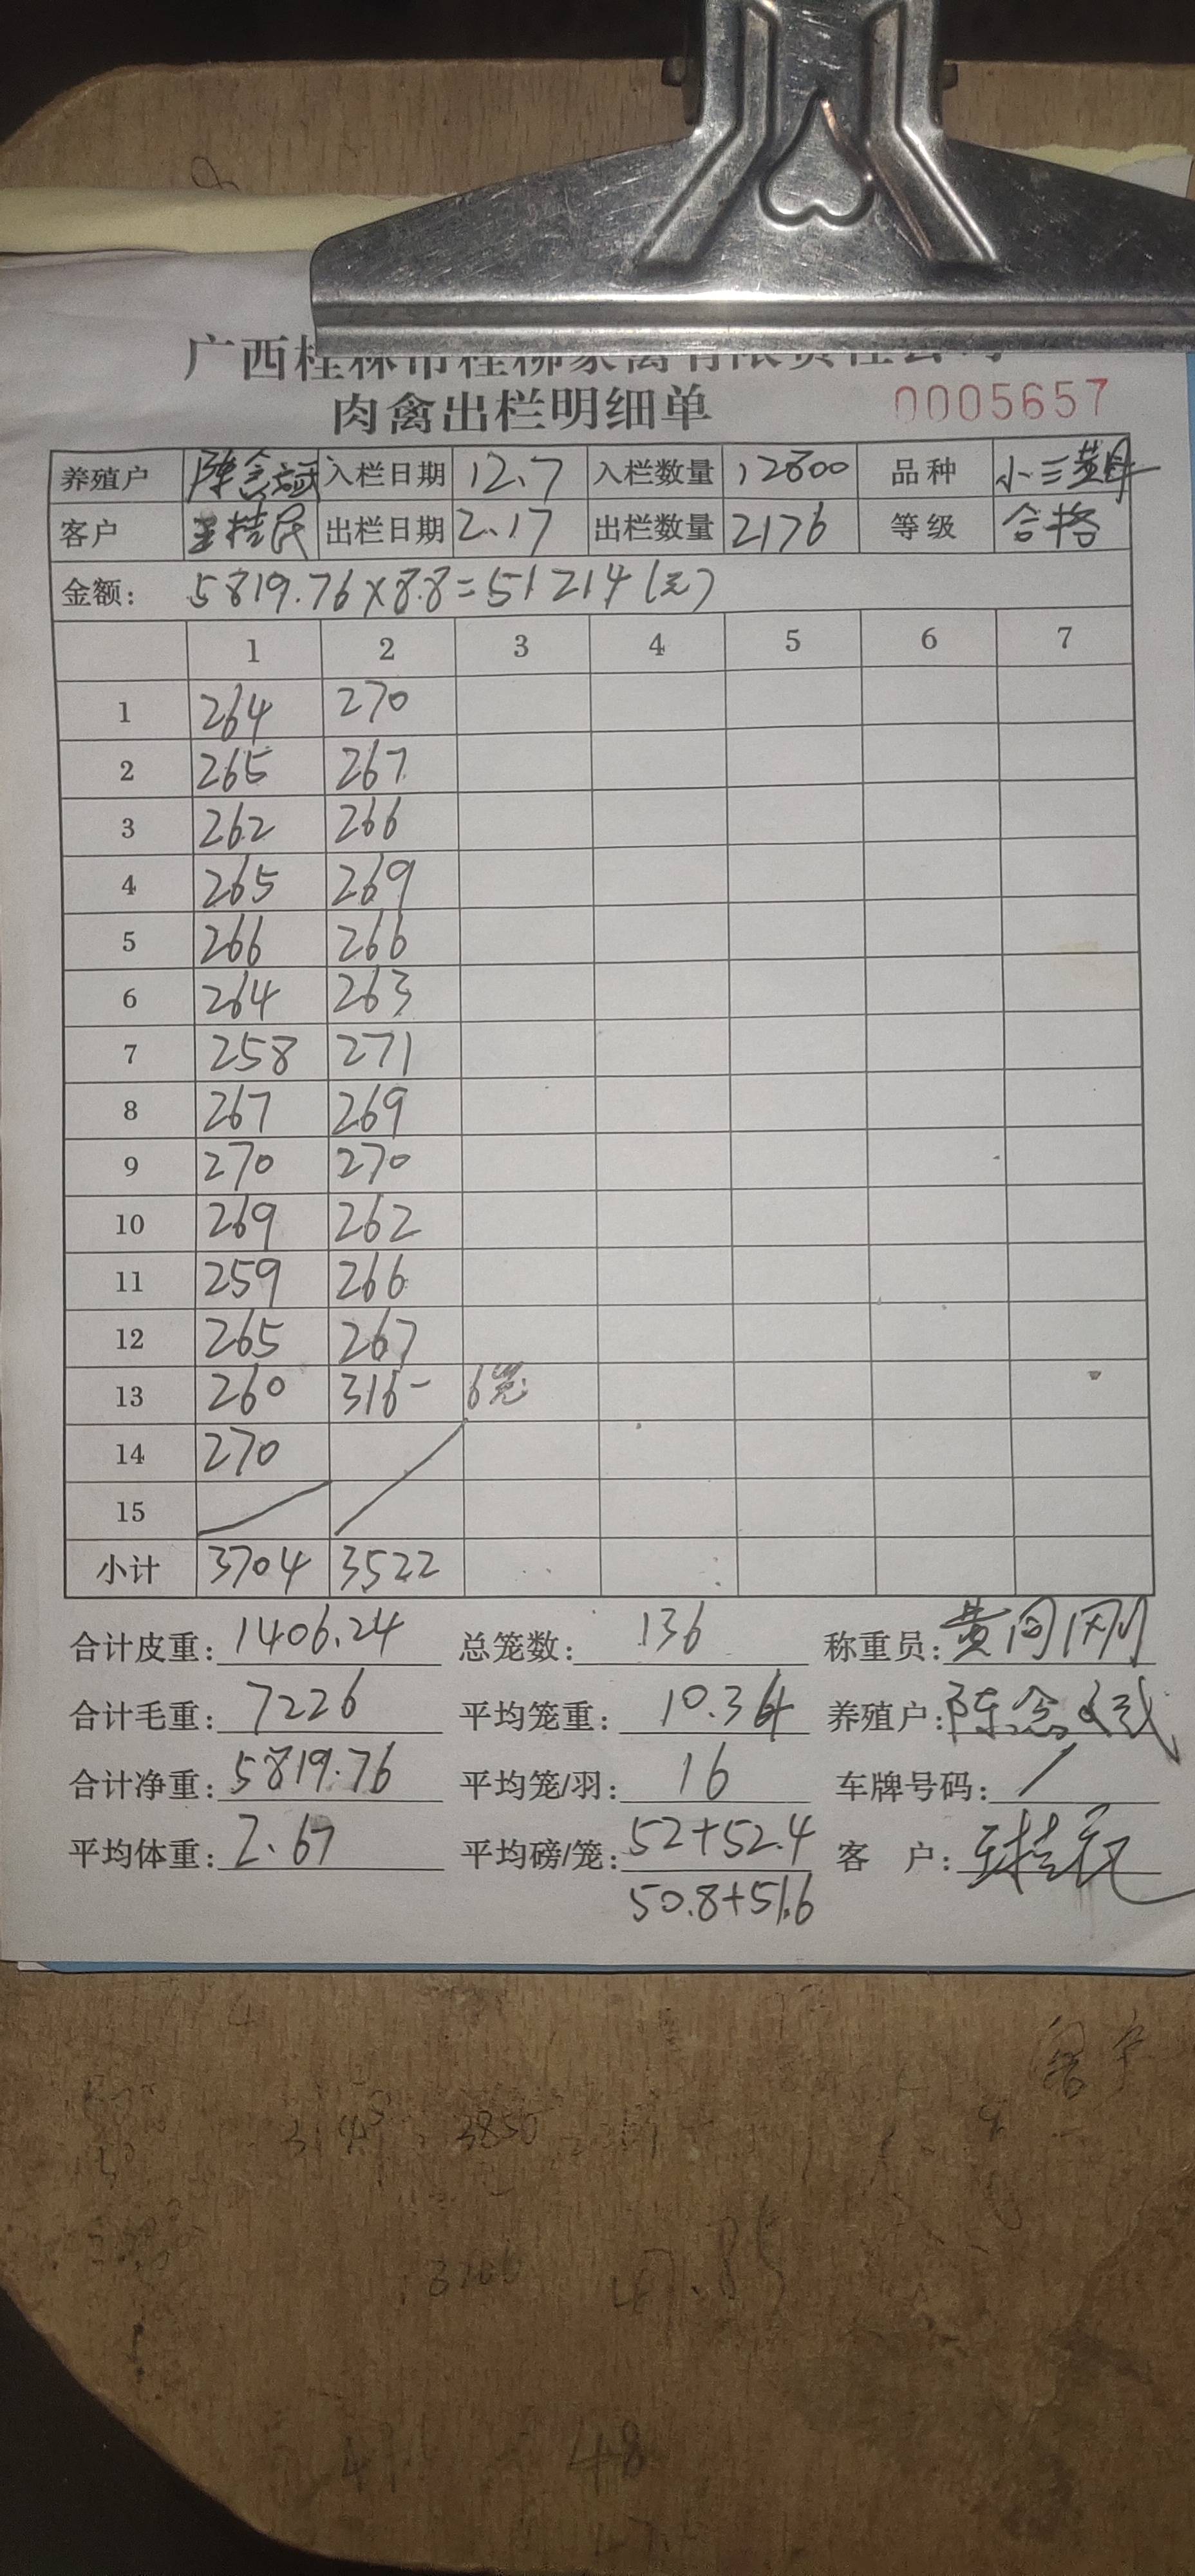 广西桂林市桂柳家禽有限责任公司
肉禽出栏明细单 0005657
养殖户 陈念斌 入栏日期 12.7 入栏数量 12800 品种 小三黄母
客户 王桂民 出栏日期 2.17 出栏数量 2176 等级 合格
金额: 5819.76×8.8=51214(元)
1 2 3 4 5 6 7
1 264 270
2 265 267
3 262 266
4 265 269
5 266 266
6 264 263
7 258 271
8 267 269
9 270 270
10 269 262
11 259 266
12 265 267
13 260 316- 6笼
14 270
15
小计 3704 3522
合计皮重: 1406.24 总笼数: 136 称重员: 黄同刚
合计毛重: 7226 平均笼重: 10.34 养殖户: 陈念斌
合计净重: 5819.76 平均笼/羽: 16 车牌号码: /
平均体重: 2.67 平均磅/笼: 52+52.4 客 户: 王桂民
50.8+51.6
3850
48